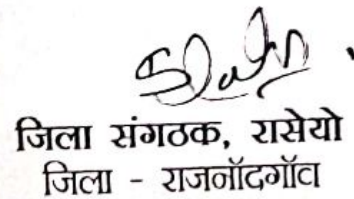 जिला संगठक, रासेयो
जिला - राजनॉदगॉव